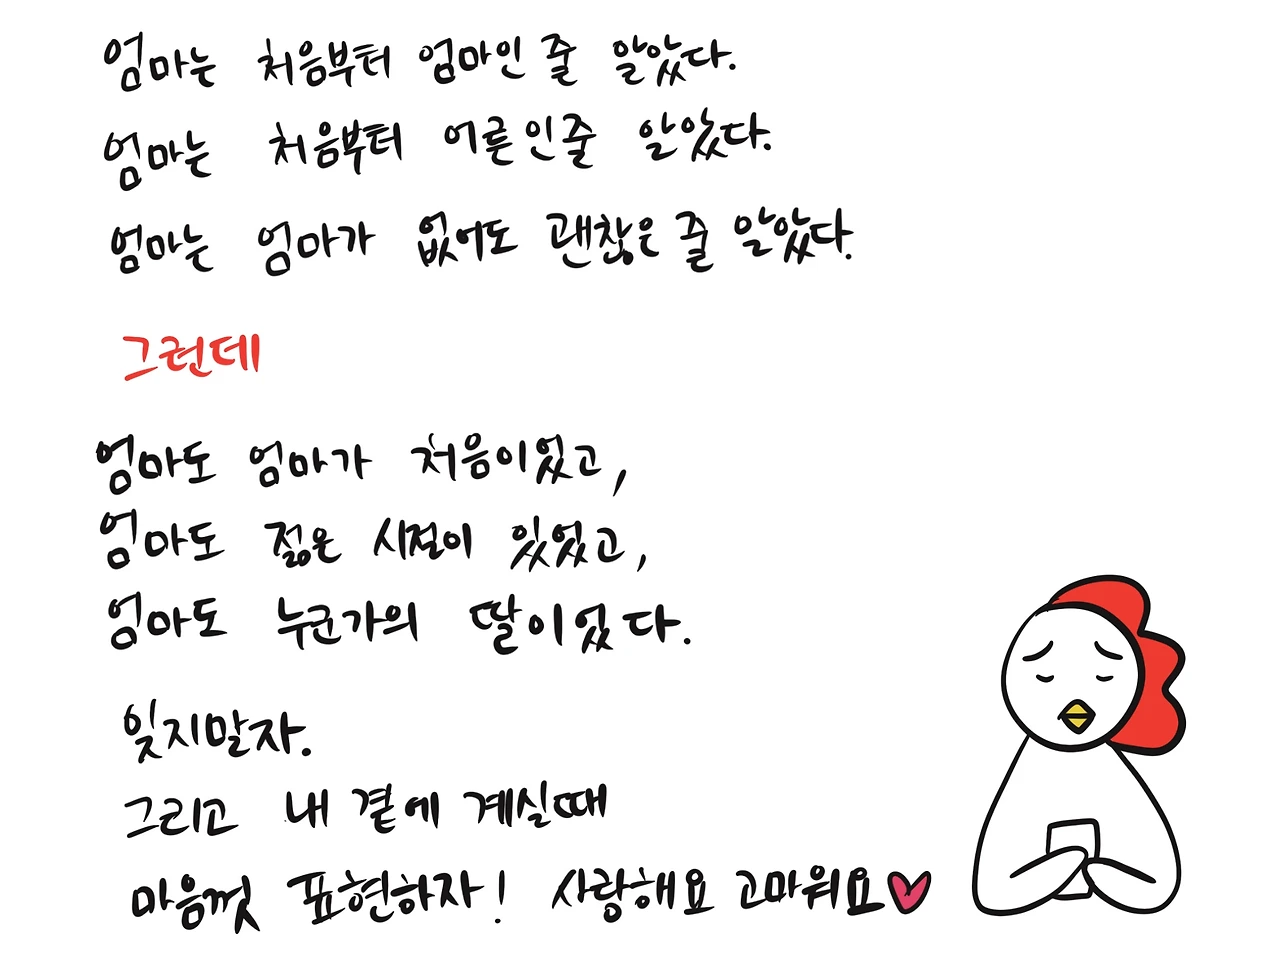 엄마는 처음부터 엄마인 줄 알았다.
엄마는 처음부터 어른인줄 알았다.
엄마는 엄마가 없어도 괜찮은 줄 알았다.
그런데
엄마도 엄마가 처음이었고,
엄마도 젊은 시절이 있었고,
엄마도 누군가의 딸이었다.
잊지말자.
그리고 내 곁에 계실때
마음껏 표현하자! 사랑해요 고마워요